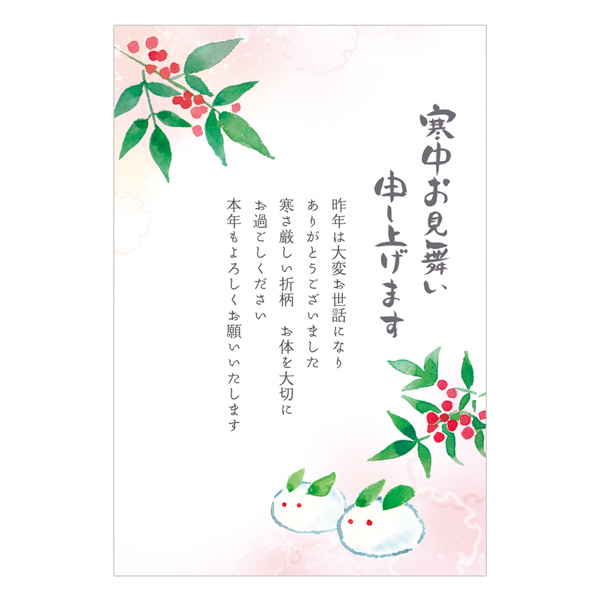 寒中お見舞い
申し上げます
昨年は大変お世話になり
ありがとうございました
寒さ厳しい折柄　お体を大切に
お過ごしください
本年もよろしくお願いいたします